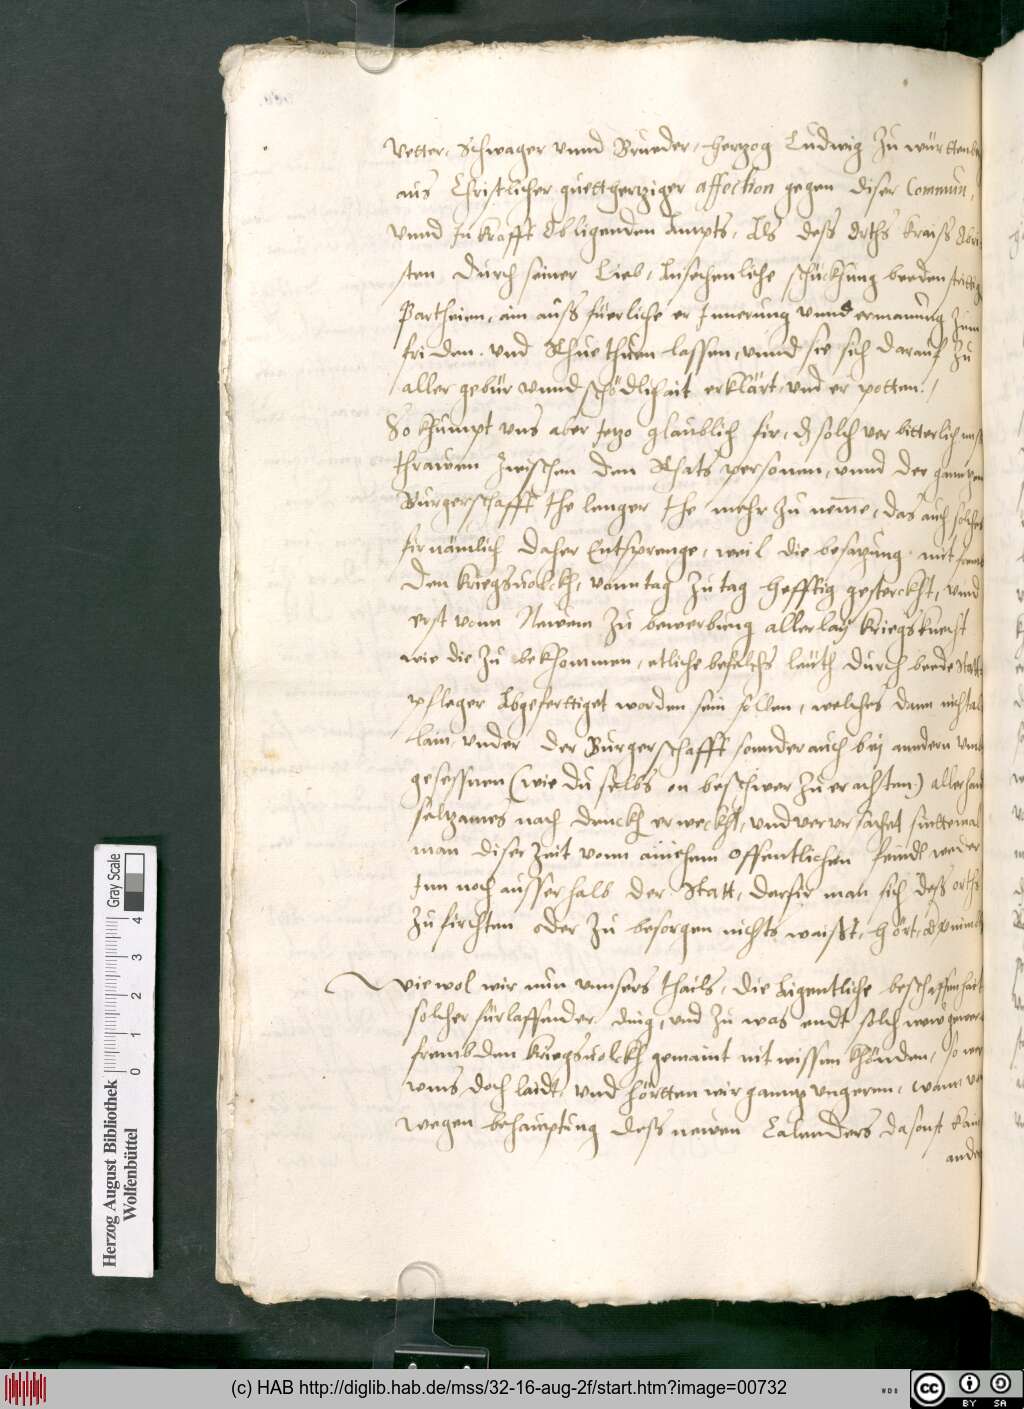 Vetter, Schwager vnnd Brueder, Hertzog Ludwig Zu württenb
aus Christlicher guetthertziger affection gegen diser Commun,
vnnd In krafft Obligenden Ampts, Als deß Orths kraiß Obri
sten durch seiner Lieb, Ansechenliche schückhung beeden strittig
Partheien, ain aussfüerliche er Innerung vnnd ermanung Zum
friden vnd Rhue thuen lassen, vnnd sie sich darauf Zu
aller gebür vnnd schidlichait erklärt, vnd er potten.
So khumpt vns aber Jetzo glaublich fir, dz solch verbitterlich miß
thrawen Zwischen den Rhats personen, vnnd der gantzen
Burgerschafft Ihe lenger Ihe mehr Zu neme, das auch solches
firnämlich daher Entsprenge, weil die besatzung mit fremb
den kriegsvolckh, vonn tag Zu tag hefftig gesterckht, vnnd
erst vonn Newem Zu bewerbung allerlay kriegsknecht
wie die Zu bekhommen, etliche befelchs leüth durch beede Statt
pfleger Abgeferttiget worden sein sollen, welches dann nicht al
lain vnder der Burgerschafft sonnder auch bey anndern vmb
gesessnen (wie du selbs on beschwer Zuerachten) allerhan
seltzames nach denckh erweckht, vnd vervrsachet sinttemal
man diser Zeit vonn ainichem offentlichen feindt weder
Inn noch ausserhalb der Statt, darfir man sich deß orths
Zu firchten oder Zu besorgen nichts waist, hört,
Wiewol wir nun vnnsers thails, die Aigentliche beschaffenhait
solcher fürlaffender ding, vnd Zu was endt solch new gewor
frembden kriegsvolckh gemaint nit wissen khönden, so wer
vnns doch laidt, vnd hörtten wir gantz vngeren, wann vo
wegen behauptung deß newen Calenders da sonst kain
ander
Herzog August Bibliothek
Wolfenbüttel
0 1 2 3 4
Gray Scale
(c) HAB http://diglib.hab.de/mss/32-16-aug-2f/start.htm?image=00732
WDB
cc BY SA